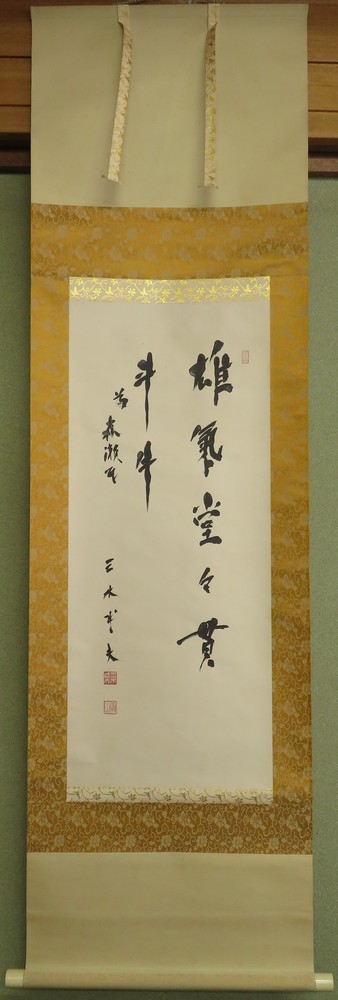 雄氣堂々貫
斗牛
為森瀬氏
三木武夫